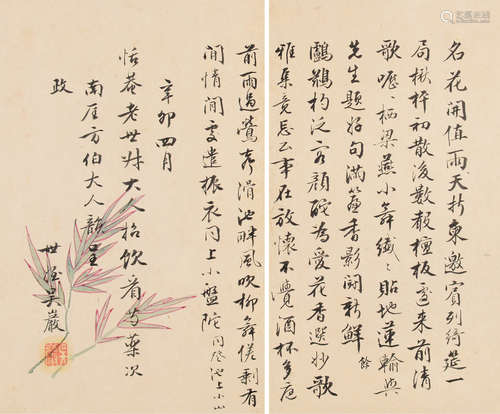 名花開值雨天折柬邀賓列綺筵一
局楸枰初散後數聲檀板遞來前清
歌嚦〻栖梁燕小舞纖〻貼地蓮輸與
先生題好句滿簷香影鬬新鮮 餘
鸕鶿杓泛客顏酡為愛花香選妙歌
雅集竟忘公事在放懷不覺酒杯多庭
前雨過鶯聲滑池畔風吹柳舞傞剩有
閒情閒處遣振衣同上小盤陀 同登池上小山
辛卯四月
恬菴老世叔大人招飲看芍藥次
南厓方伯大人韻呈
政
世姪吳巖